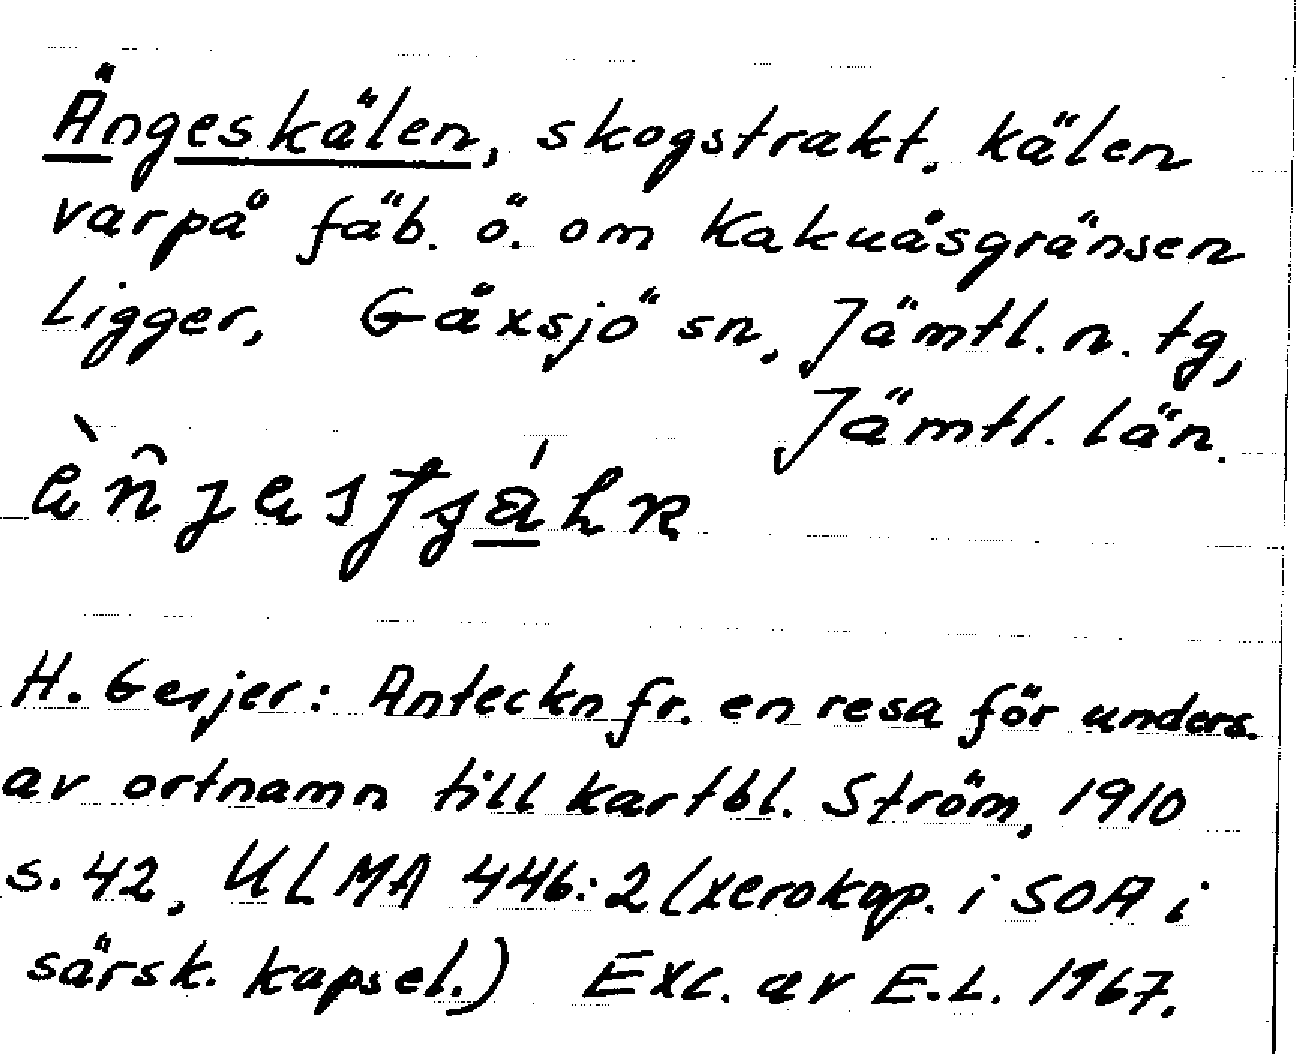 Ängeskälen, skogstrakt. Kälen
varpå fäb. ö. om Kakuåsgränsen
ligger, Gåxsjö sn, Jämtl. n. tg,
Jämtl. län.
H. Geijer: Anteckn fr. en resa för unders.
av ortnamn till kartbl. Ström, 1910
s. 42, ULMA 446:2 (xerokop. i SOA i
särsk. kapsel.) Exc. av E.L. 1967.